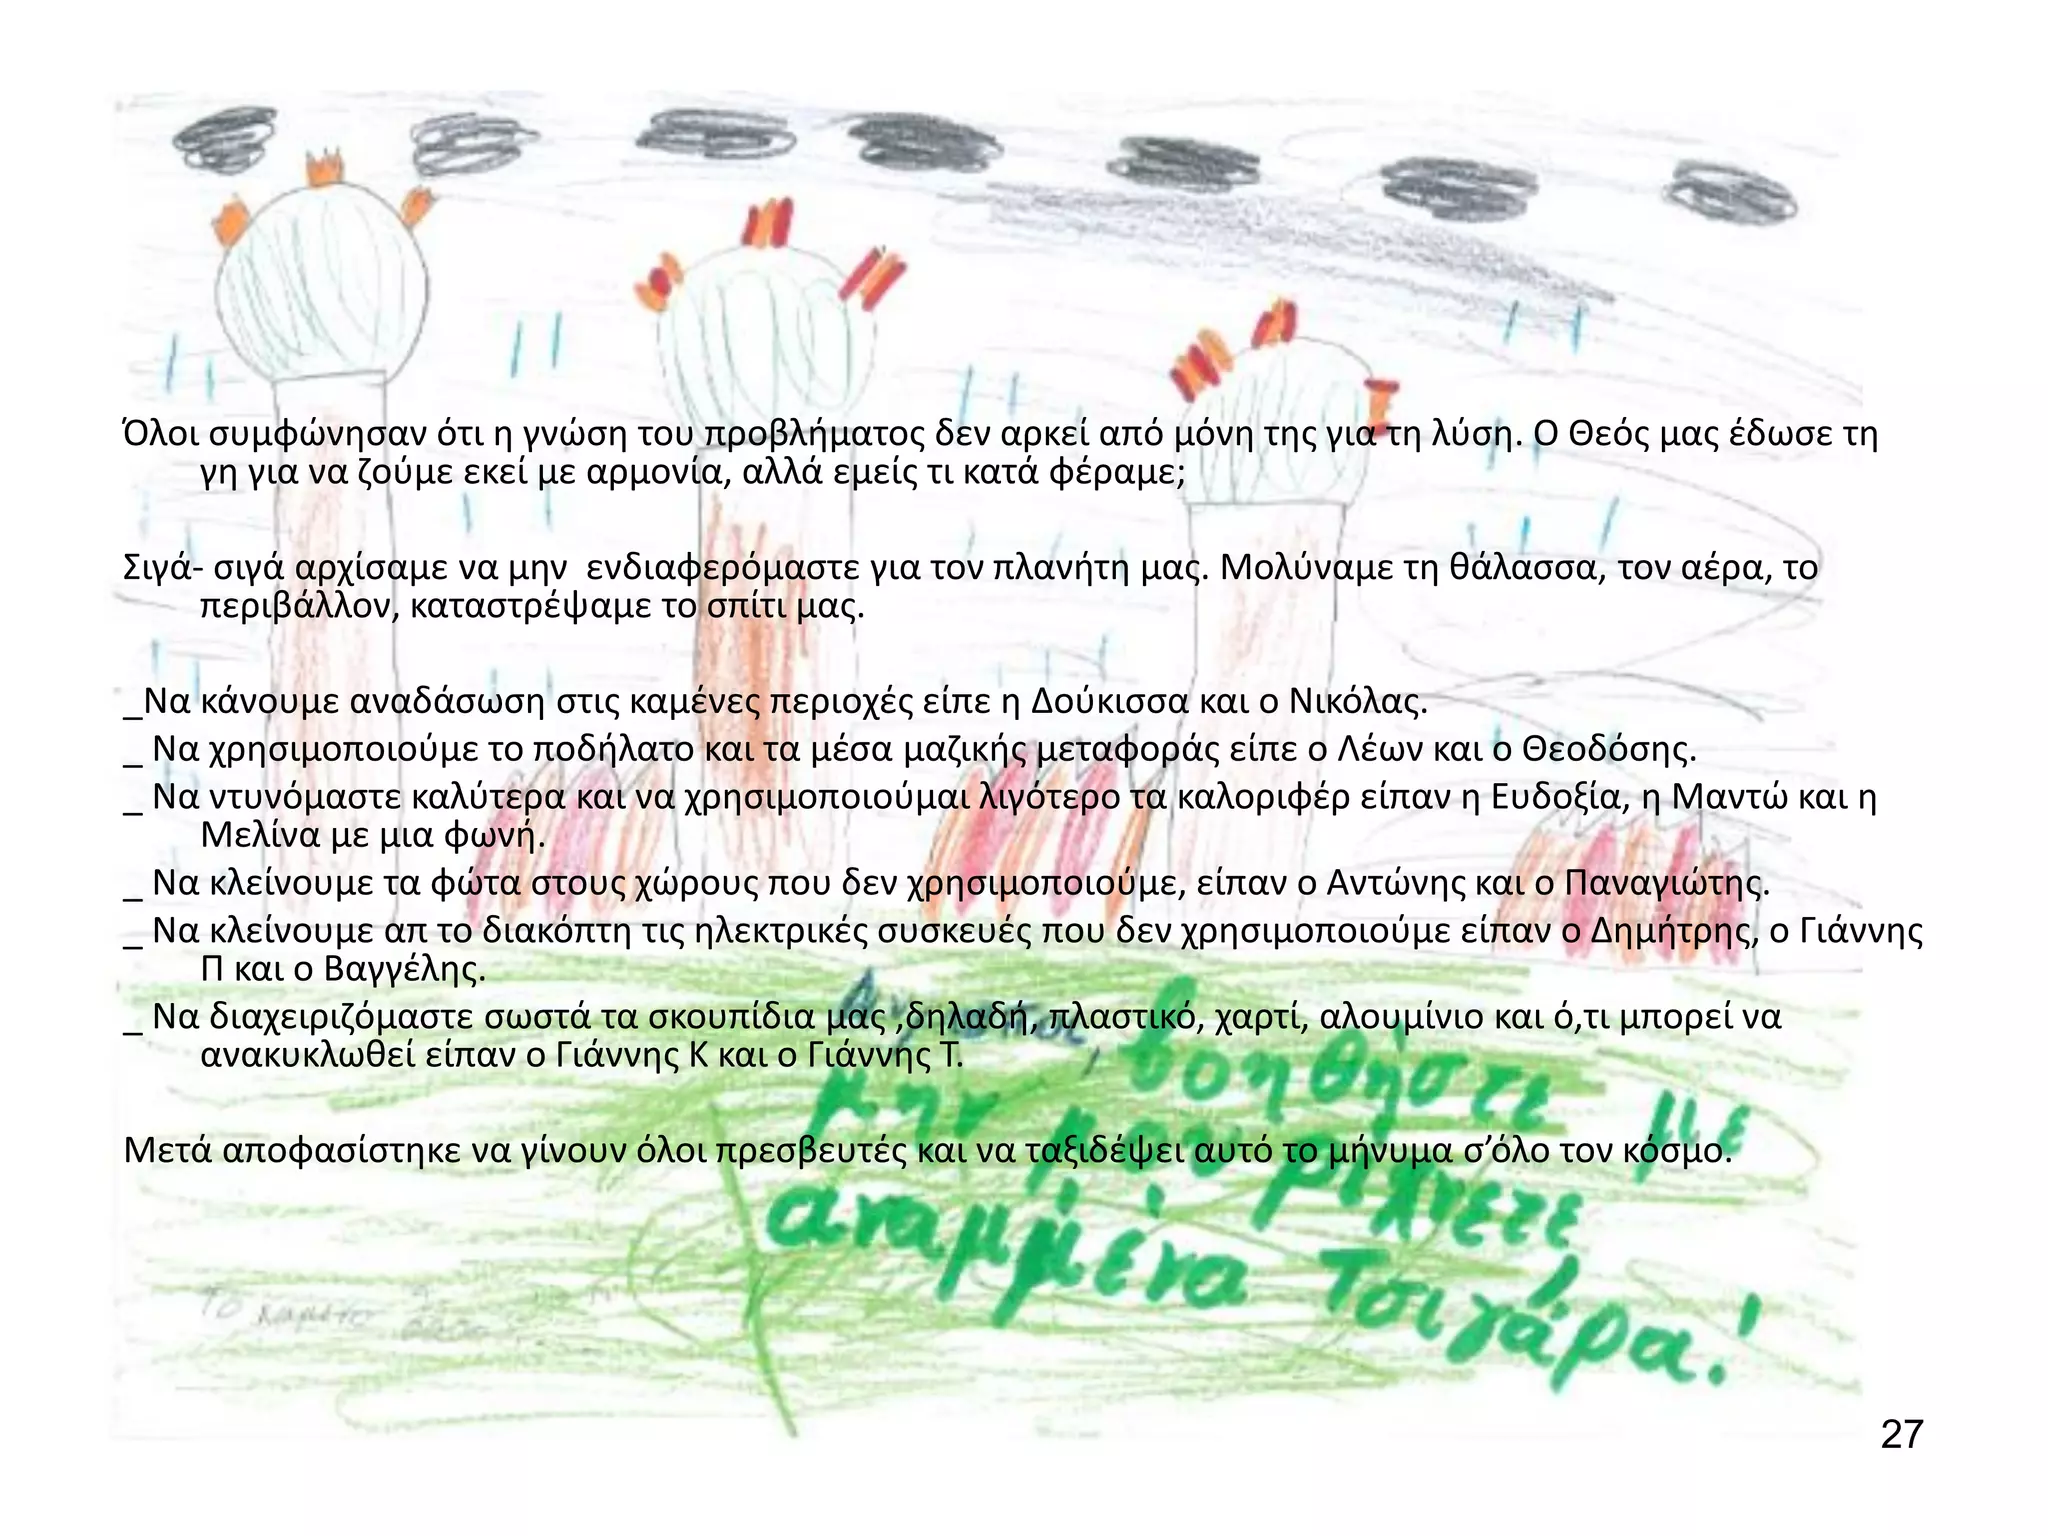 Όλοι συμφώνησαν ότι η γνώση του προβλήματος δεν αρκεί από μόνη της για τη λύση. Ο Θεός μας έδωσε τη
γη για να ζούμε εκεί με αρμονία, αλλά εμείς τι κατά φέραμε;
Σιγά- σιγά αρχίσαμε να μην  ενδιαφερόμαστε για τον πλανήτη μας. Μολύναμε τη θάλασσα, τον αέρα, το
περιβάλλον, καταστρέψαμε το σπίτι μας.
_Να κάνουμε αναδάσωση στις καμένες περιοχές είπε η Δούκισσα και ο Νικόλας.
_ Να χρησιμοποιούμε το ποδήλατο και τα μέσα μαζικής μεταφοράς είπε ο Λέων και ο Θεοδόσης.
_ Να ντυνόμαστε καλύτερα και να χρησιμοποιούμαι λιγότερο τα καλοριφέρ είπαν η Ευδοξία, η Μαντώ και η
Μελίνα με μια φωνή.
_ Να κλείνουμε τα φώτα στους χώρους που δεν χρησιμοποιούμε, είπαν ο Αντώνης και ο Παναγιώτης.
_ Να κλείνουμε απ το διακόπτη τις ηλεκτρικές συσκευές που δεν χρησιμοποιούμε είπαν ο Δημήτρης, ο Γιάννης
Π και ο Βαγγέλης.
_ Να διαχειριζόμαστε σωστά τα σκουπίδια μας ,δηλαδή, πλαστικό, χαρτί, αλουμίνιο και ό,τι μπορεί να
ανακυκλωθεί είπαν ο Γιάννης Κ και ο Γιάννης Τ.
Μετά αποφασίστηκε να γίνουν όλοι πρεσβευτές και να ταξιδέψει αυτό το μήνυμα σ’όλο τον κόσμο.
βοηθήστε με
μην μου ρίχνετε
αναμμένα τσιγάρα!
Το καμένο
27